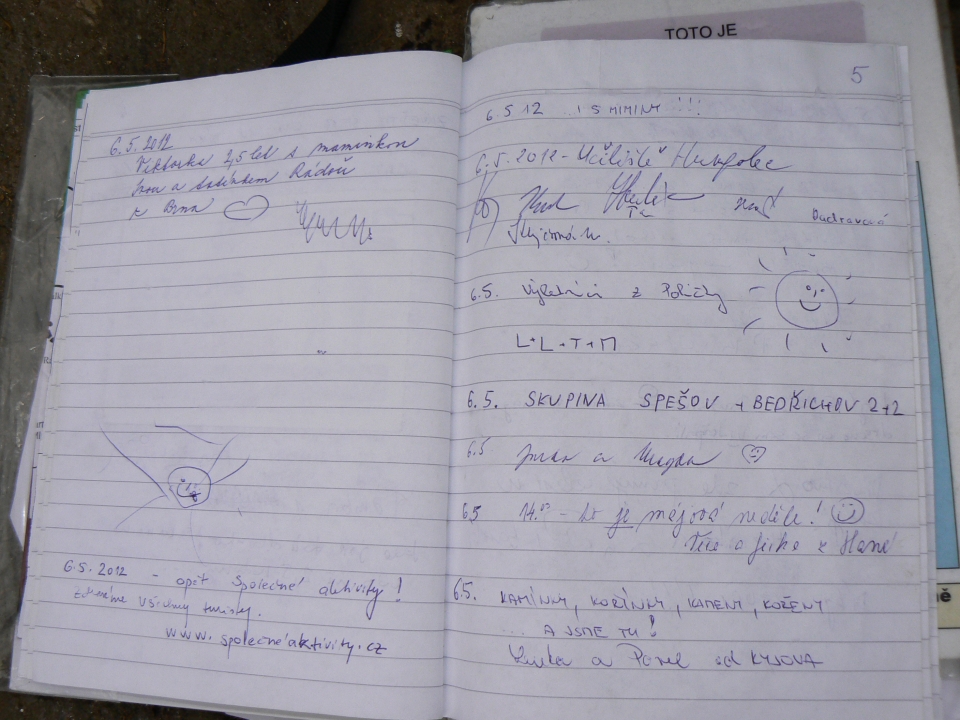 TOTO JE
6.5.2012
Viktorka 2,5 let s maminkou
a tatínkem
z Brna
6.5.2012 - opět společné aktivity!
zdravíme všechny turisty.
www.společnéaktivity.cz
5
6 5 12 i s MIMINY !!!
6.5.2012 - Učiliště Humpolec
6.5. výletníci z Poličky
L+L+T+M
6.5. SKUPINA SPEŠOV + BEDŘICHOV 2+2
6.5 a Magda
6.5 14.00 - to je májová neděle!
a Jirka z Hané
6.5. KAMÍNKY, KOŘÍNKY, KAMENY, KOŘENY
... A JSME TU!
Lenka a Pavel od KYJOVA